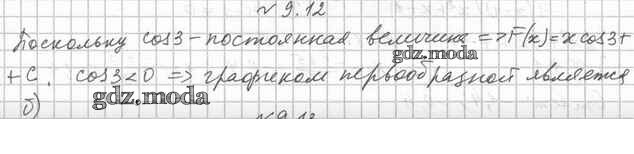 № 9.12
Поскольку cos3 - постоянная величина => F(x) = x cos3 +
gdz.moda
+ C. cos3 < 0 => графиком первообразной является
gdz.moda
б)
№ 9.13